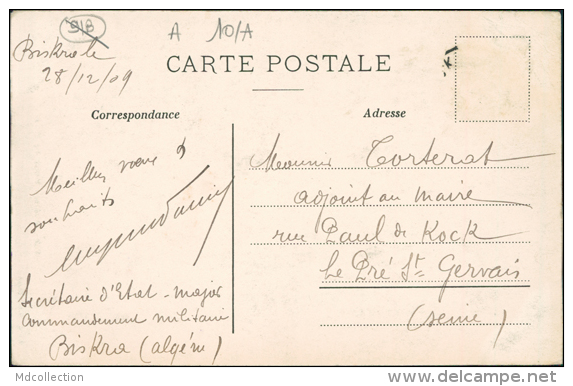 A 10/A
Biskra le
28/12/09
CARTE POSTALE
Correspondance
Adresse
Meilleurs vœux &
souhaits
Secrétaire d'Etat-major
Commandement militaire
Biskra (algérie)
Monsieur Torterat
adjoint au maire
rue Paul de Kock
Le Pré St Gervais
(Seine)
Mdcollection
delcampe.net